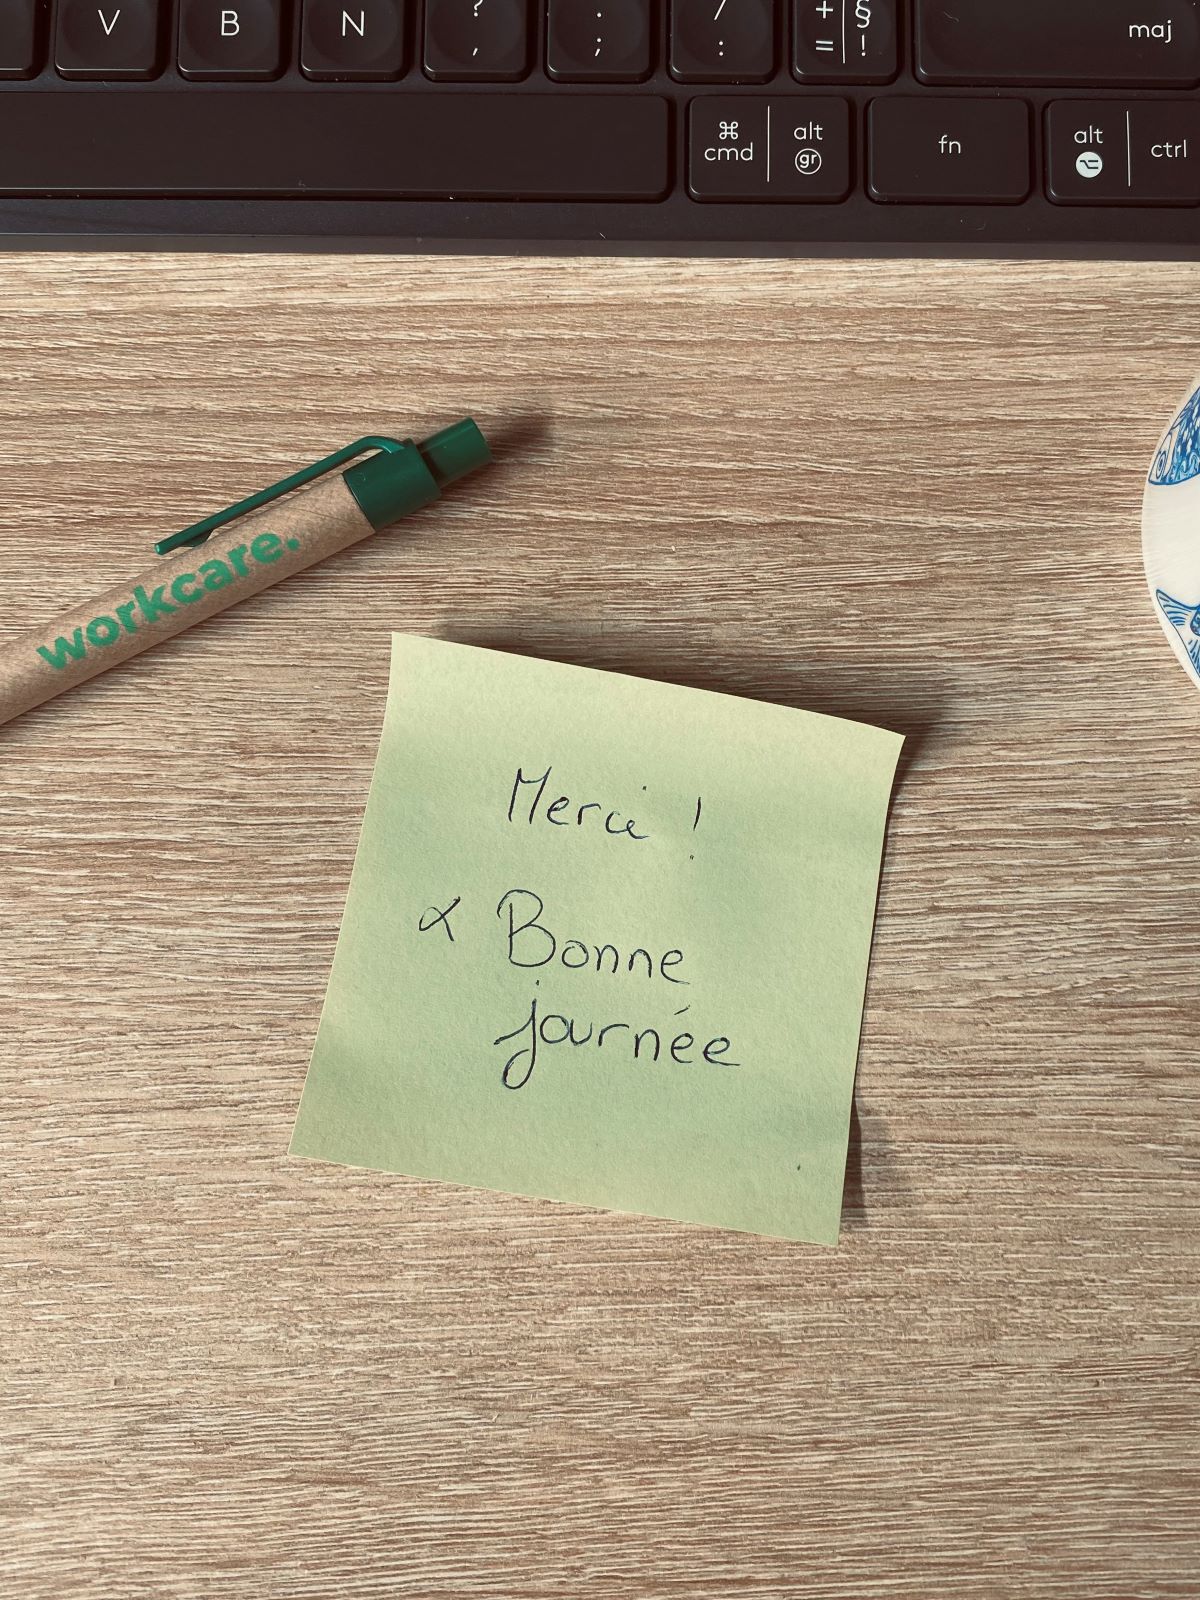 V B N ? , . ; / : + = § ! maj
⌘ cmd alt gr fn alt ⌥ ctrl
workcare.
Merci !
& Bonne
journée